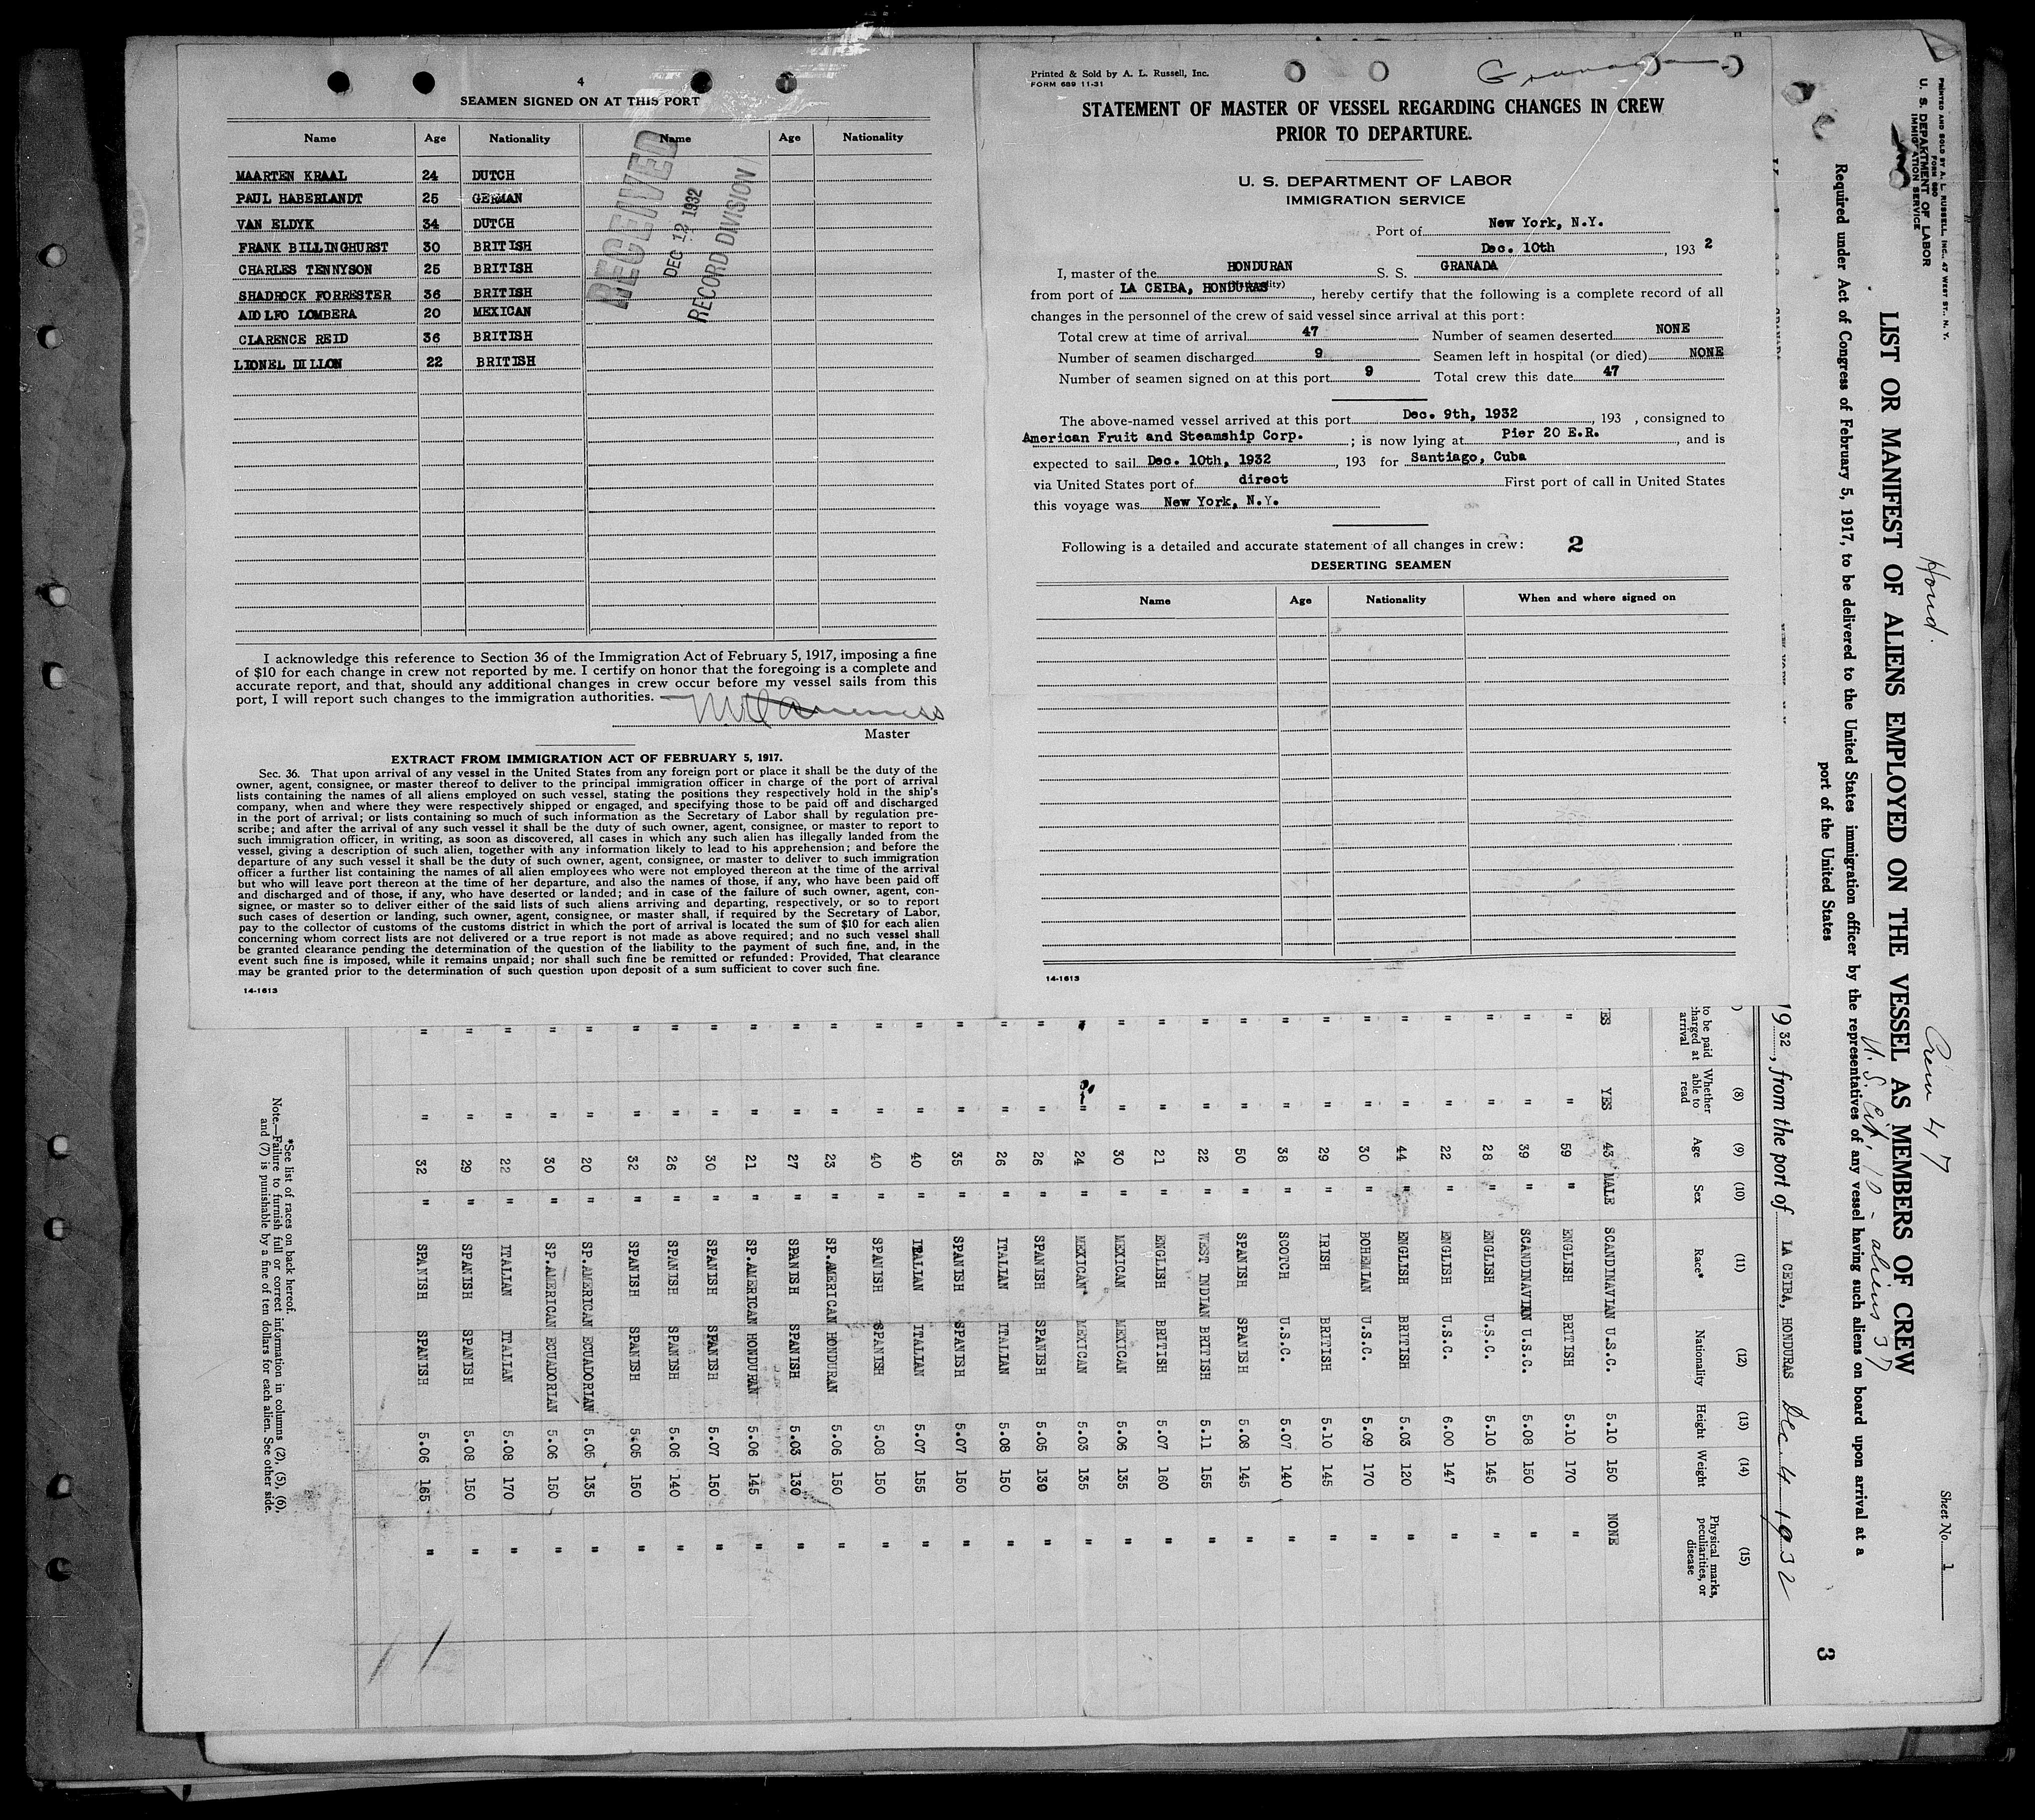 4
SEAMEN SIGNED ON AT THIS PORT
Name Age Nationality Name Age Nationality
MAARTEN KRAAL 24 DUTCH
PAUL HABERLANDT 25 GERMAN
VAN ELDYK 34 DUTCH
FRANK BILLINGHURST 30 BRITISH
CHARLES TENNYSON 25 BRITISH
SHADROCK FORRESTER 36 BRITISH
AIDLFO LOMBERA 20 MEXICAN
CLARENCE REID 36 BRITISH
LIONEL DILLON 22 BRITISH
RECEIVED
DEC 12 1932
RECORD DIVISION
I acknowledge this reference to Section 36 of the Immigration Act of February 5, 1917, imposing a fine
of $10 for each change in crew not reported by me. I certify on honor that the foregoing is a complete and
accurate report, and that, should any additional changes in crew occur before my vessel sails from this
port, I will report such changes to the immigration authorities.
Master
EXTRACT FROM IMMIGRATION ACT OF FEBRUARY 5, 1917.
Sec. 36. That upon arrival of any vessel in the United States from any foreign port or place it shall be the duty of the
owner, agent, consignee, or master thereof to deliver to the principal immigration officer in charge of the port of arrival
lists containing the names of all aliens employed on such vessel, stating the positions they respectively hold in the ship's
company, when and where they were respectively shipped or engaged, and specifying those to be paid off and discharged
in the port of arrival; or lists containing so much of such information as the Secretary of Labor shall by regulation pre-
scribe; and after the arrival of any such vessel it shall be the duty of such owner, agent, consignee, or master to report to
such immigration officer, in writing, as soon as discovered, all cases in which any such alien has illegally landed from the
vessel, giving a description of such alien, together with any information likely to lead to his apprehension; and before the
departure of any such vessel it shall be the duty of such owner, agent, consignee, or master to deliver to such immigration
officer a further list containing the names of all alien employees who were not employed thereon at the time of the arrival
but who will leave port thereon at the time of her departure, and also the names of those, if any, who have been paid off
and discharged and of those, if any, who have deserted or landed; and in case of the failure of such owner, agent, con-
signee, or master so to deliver either of the said lists of such aliens arriving and departing, respectively, or so to report
such cases of desertion or landing, such owner, agent, consignee, or master shall, if required by the Secretary of Labor,
pay to the collector of customs of the customs district in which the port of arrival is located the sum of $10 for each alien
concerning whom correct lists are not delivered or a true report is not made as above required; and no such vessel shall
be granted clearance pending the determination of the question of the liability to the payment of such fine, and, in the
event such fine is imposed, while it remains unpaid; nor shall such fine be remitted or refunded: Provided, That clearance
may be granted prior to the determination of such question upon deposit of a sum sufficient to cover such fine.
14-1613
Printed & Sold by A. L. Russell, Inc.
FORM 689 11-31
Granada
STATEMENT OF MASTER OF VESSEL REGARDING CHANGES IN CREW
PRIOR TO DEPARTURE.
U. S. DEPARTMENT OF LABOR
IMMIGRATION SERVICE
Port of New York, N.Y.
Dec. 10th, 193 2
I, master of the HONDURAN S. S. GRANADA
from port of LA CEIBA, HONDURAS, hereby certify that the following is a complete record of all
changes in the personnel of the crew of said vessel since arrival at this port:
Total crew at time of arrival 47 Number of seamen deserted NONE
Number of seamen discharged 9 Seamen left in hospital (or died) NONE
Number of seamen signed on at this port 9 Total crew this date 47
The above-named vessel arrived at this port Dec. 9th, 1932, 193 , consigned to
American Fruit and Steamship Corp. ; is now lying at Pier 20 E.R. , and is
expected to sail Dec. 10th, 1932 , 193 for Santiago, Cuba
via United States port of direct First port of call in United States
this voyage was New York, N.Y.
Following is a detailed and accurate statement of all changes in crew: 2
DESERTING SEAMEN
Name Age Nationality When and where signed on
14-1613
PRINTED AND SOLD BY A. L. RUSSELL, INC., 47 WEST ST., N. Y.
FORM 680
U. S. DEPARTMENT OF LABOR
IMMIGRATION SERVICE
Hond.
Crew 47
U. S. Cit. 10 - aliens 37
Sheet No. 1
LIST OR MANIFEST OF ALIENS EMPLOYED ON THE VESSEL AS MEMBERS OF CREW
Required under Act of Congress of February 5, 1917, to be delivered to the United States immigration officer by the representatives of any vessel having such aliens on board upon arrival at a
port of the United States
3
19 32, from the port of LA CEIBA, HONDURAS Dec. 4 1932
(8) (9) (10) (11) (12) (13) (14) (15)
to be paid
charged at
arrival
Whether
able to
read
Age Sex Race* Nationality Height Weight
Physical marks,
peculiarities, or
disease
ES YES 43 MALE SCANDINAVIAN U.S.C. 5.10 150 NONE
" " 59 " ENGLISH BRITISH 5.10 170 "
" " 39 " SCANDINAVIAN U.S.C. 5.08 150 "
" " 28 " ENGLISH U.S.C. 5.10 145 "
" " 22 " ENGLISH U.S.C. 6.00 147 "
" " 44 " ENGLISH BRITISH 5.03 120 "
" " 30 " BOHEMIAN U.S.C. 5.09 170 "
" " 29 " IRISH BRITISH 5.10 145 "
" " 38 " SCOTCH U.S.C. 5.07 140 "
" " 50 " SPANISH SPANISH 5.08 145 "
" " 22 " WEST INDIAN BRITISH 5.11 155 "
" " 21 " ENGLISH BRITISH 5.07 160 "
" " 30 " MEXICAN MEXICAN 5.06 135 "
" " 24 " MEXICAN MEXICAN 5.03 135 "
" " 26 " SPANISH SPANISH 5.05 130 "
" " 26 " ITALIAN ITALIAN 5.08 150 "
" " 35 " SPANISH SPANISH 5.07 150 "
" " 40 " ITALIAN ITALIAN 5.07 155 "
" " 40 " SPANISH SPANISH 5.08 150 "
" " 23 " SP.AMERICAN HONDURAN 5.06 150 "
" " 27 " SPANISH SPANISH 5.03 130 "
" " 21 " SP.AMERICAN HONDURAN 5.06 145 "
" " 30 " SPANISH SPANISH 5.07 150 "
" " 26 " SPANISH SPANISH 5.06 140 "
" " 32 " SPANISH SPANISH 5.05 150 "
" " 20 " SP.AMERICAN ECUADORIAN 5.05 135 "
" " 30 " SP.AMERICAN ECUADORIAN 5.06 150 "
" " 22 " ITALIAN ITALIAN 5.08 170 "
" " 29 " SPANISH SPANISH 5.08 150 "
" " 32 " SPANISH SPANISH 5.06 165 "
*See list of races on back hereof.
Note.—Failure to furnish full or correct information in columns (2), (5), (6),
and (7) is punishable by a fine of ten dollars for each alien. See other side.